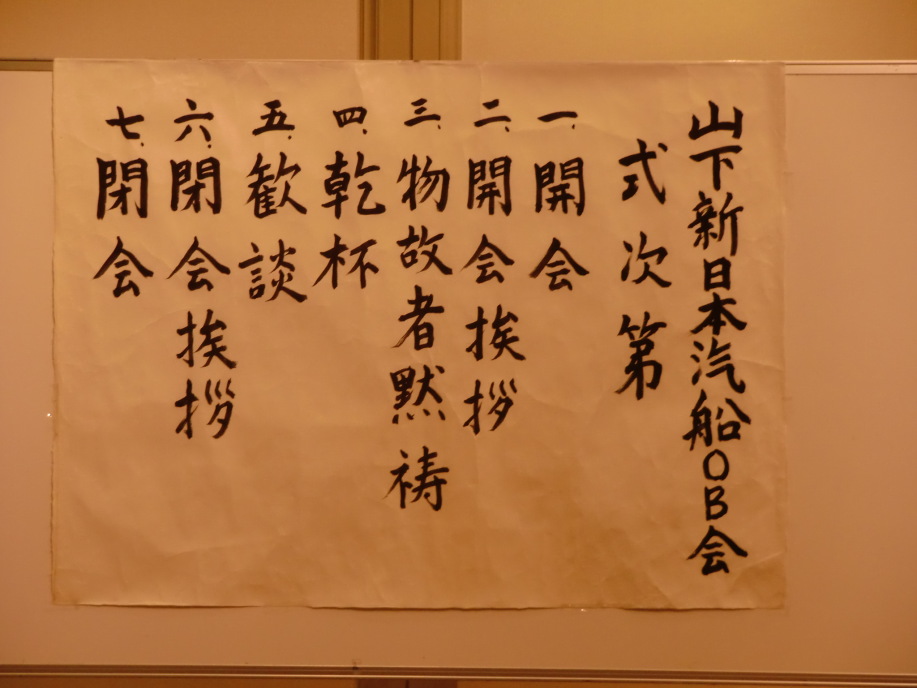 山下新日本汽船OB会
式次第
一、開会
二、開会挨拶
三、物故者黙祷
四、乾杯
五、歓談
六、閉会挨拶
七、閉会